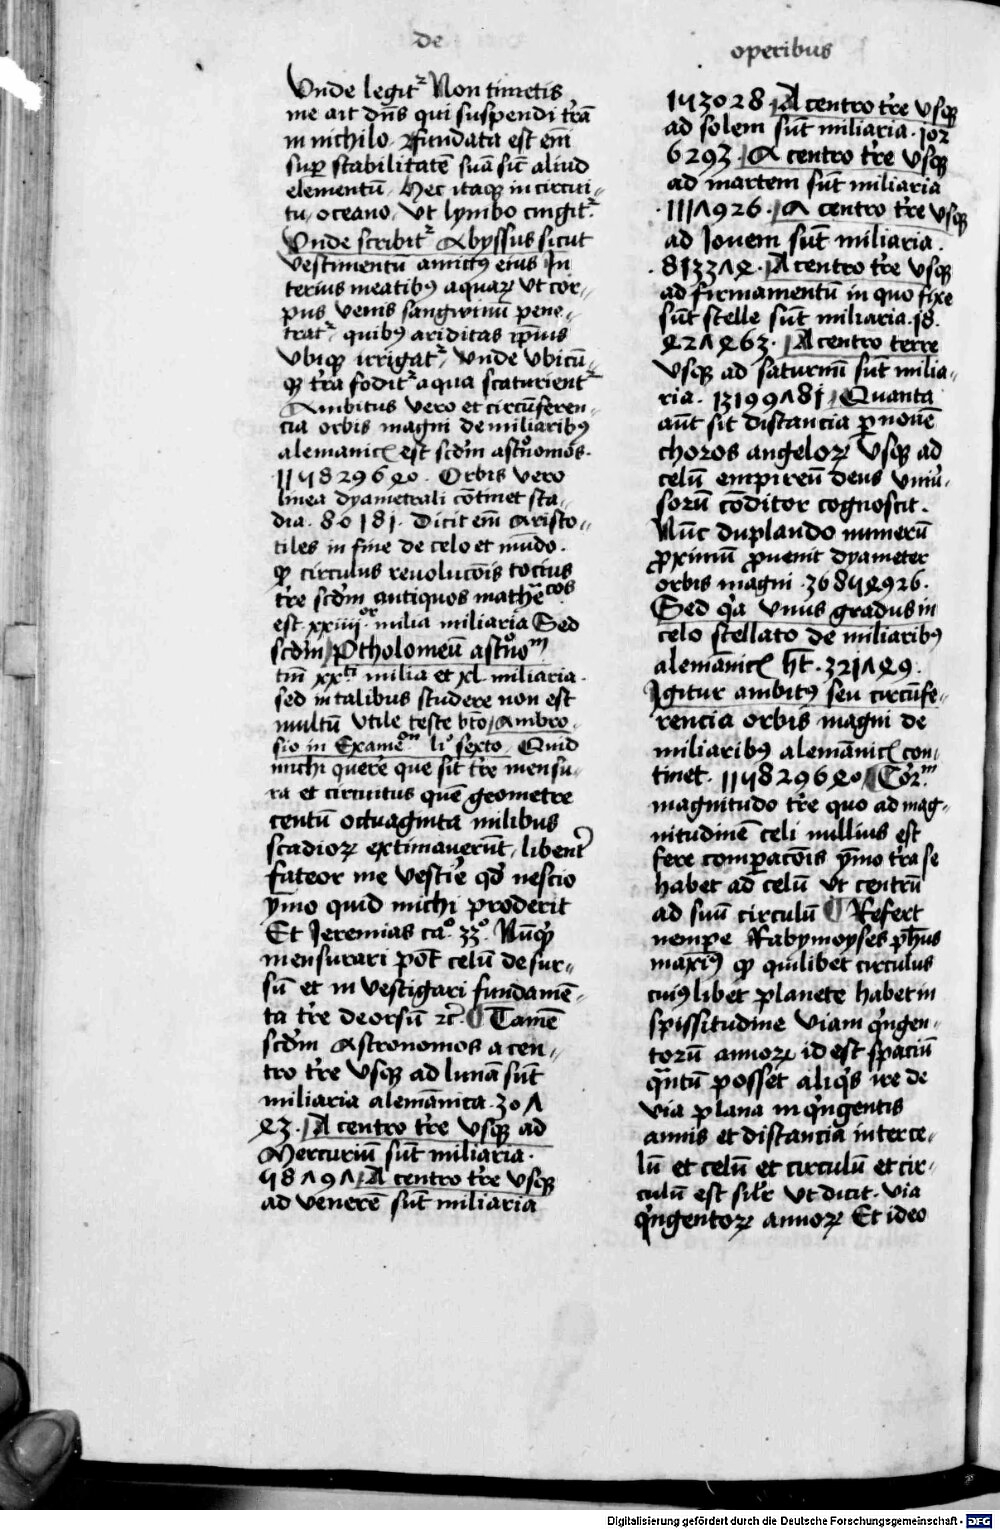 de
operibus
Unde legit᷑ Non timetis
me ait dn̄s qui suspendi tr̄a
in nichilo. fundata est em̄
suꝑ stabilitatē suā sic̄ aliud
elementū. Hec itaqꝫ in circui〃
tu oceano, ut lymbo cingit᷑.
Unde scribit᷑ Abyssus sicut
vestimentū amictꝰ eius In
terius meatibꝰ aquaꝝ ut cor〃
pus venis sangwinū pene〃
trat᷑ quibꝰ ariditas ip̄ius
ubiqꝫ irrigat᷑, unde ubicū〃
qꝫ tr̄a fodit᷑ aqua scaturient᷑
Ambitus vero et circūferen〃
cia orbis magni de miliaribꝰ
alemanicꝭ est scd̄m astͦnomos.
115829640. Orbis vero
linea dyametrali cōtinet sta〃
dia. 80181. Dicit em̄ Aristo〃
tiles in fine de celo et mūdo.
ꝙ circulus revolucōis tocius
tr̄e scd̄m antiquos mathēcos
est xxiiijor milia miliaria Sed
scd̄m Ptholomeū astͦnom
tm̄ xxti milia et xl miliaria.
sed in talibus studere non est
multū utile teste bt̄o Ambro〃
sio in Examēon liͦ sexto. Quid
michi querē que sit tr̄e mensu〃
ra et circuitus quē geometre
centū octuaginta milibus
scadioꝝ extimaverūt, libent᷑
fateor me vestīe qd̄ nescio
ȳmo quid michi proderit
Et Jeremias caͦ. 33ͦ. Nūꝙ
mensurari pot̄ celū desur〃
sū et investigari fundamē〃
ta tr̄e deorsū ⁊c̄. ¶ Tamē
scd̄m Astronomos a cen〃
tro tr̄e usqꝫ ad lunā sūt
miliaria alemānica. 307
43. A centro tr̄e usqꝫ ad
Mercuriū sūt miliaria.
58797. A centro tr̄e usqꝫ
ad venerē sūt miliaria
153028. A centro tr̄e usqꝫ
ad solem sūt miliaria. 102
6293. A centro tr̄e usqꝫ
ad martem sūt miliaria
.1117926. A centro tr̄e usqꝫ
ad Jovem sūt miliaria.
.813374. A centro tr̄e usqꝫ
ad firmamentū in quo fixe
sūt stelle sūt miliaria. 18.
427463. A centro terre
usqꝫ ad saturnū sūt milia〃
ria. 13199781. Quanta
aūt sit distancia ꝑ novē
choros angeloꝝ usqꝫ ad
celū empireū deus univ̄〃
sorū cōditor cognoscit.
Nūc duplando numerū
ꝓximū ꝓvenit dyameter
orbis magni .36854926.
Sed qꝛ unus gradus in
celo stellato de miliaribꝰ
alemānicꝭ ht̄ .321749.
Igitur ambitꝰ seu circūfe〃
rencia orbis magni de
miliaribꝰ alemānicꝭ con〃
tinet. 115829640 ¶ Cor̄m
magnitudo tr̄e quo ad mag〃
nitudinē celi nullius est
fere comꝑacōis ȳmo tr̄a se
habet ad celū ut centrū
ad suū circulū ¶ Refert
nempe Rabymoyses ph̄us
maxīꝰ ꝙ quilibet circulus
cuiꝰlibet planete habet in
spissitudine viam qͥngen〃
torū annoꝝ id est spaciū
qͣntū posset aliqͥs ire de
via plana in qͥngentis
annis et distancia inter ce〃
lū et celū et circulū et cir〃
culū est silr̄ ut dicit. via
qͥngentoꝝ annoꝝ Et ideo
Digitalisierung gefördert durch die Deutsche Forschungsgemeinschaft - DFG